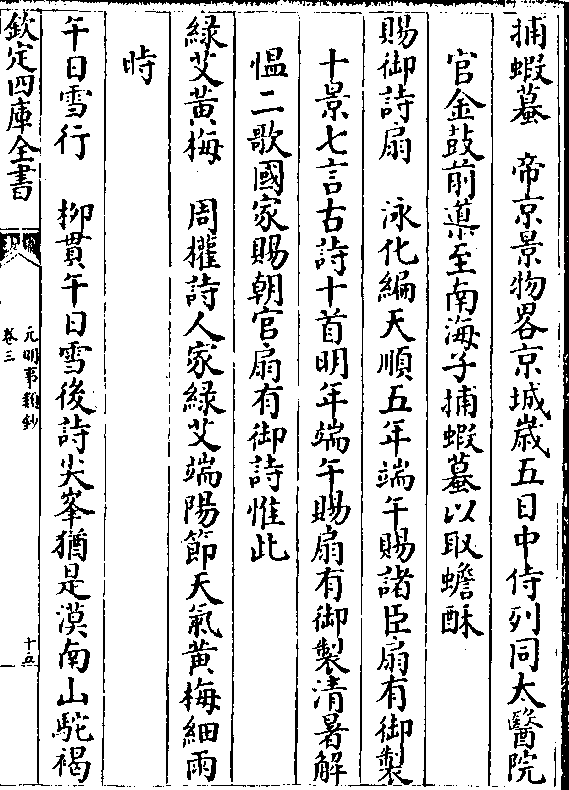 捕蝦蟇　帝京景物畧京城歲五日中侍列同太醫院
官金鼓前導至南海子捕蝦蟇以取蟾酥
賜御詩扇　泳化編天順五年端午賜諸臣扇有御製
十景七言古詩十首明年端午賜扇有御製清暑解
愠二歌國家賜朝官扇有御詩惟此
綠艾黃梅　周權詩人家綠艾端陽節天氣黃梅細雨
時
午日雪行　柳貫午日雪後詩尖峯猶是漠南山駝褐
欽定四庫全書
元明事類鈔
卷三
十五